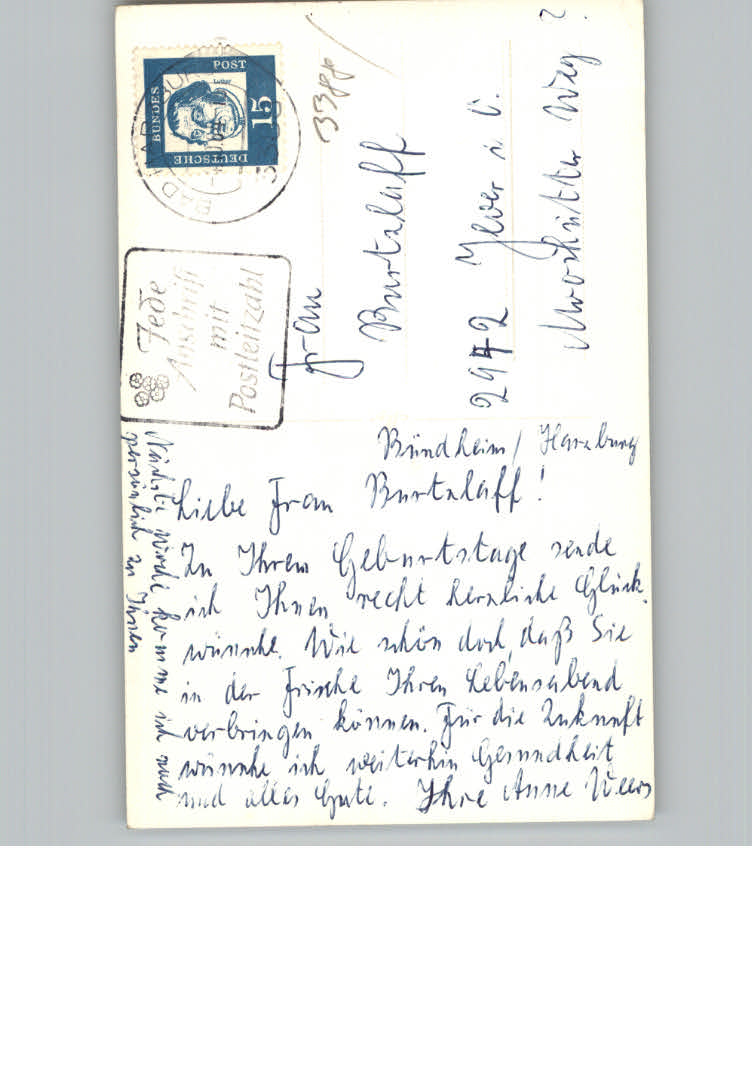 DEUTSCHE
BUNDES
POST
15
Luther
BAD
Jede
Anschrift
mit
Postleitzahl
33pp
Frau
Burtzlaff
2942 Jever i. O.
Moorhütter Weg ?
Bündheim / Harzburg
Liebe Frau Burtzlaff!
Zu Ihrem Geburtstage sende
ich Ihnen recht herzliche Glück-
wünsche. Wie schön doch, daß Sie
in der Frische Ihren Lebensabend
verbringen können. Für die Zukunft
wünsche ich weiterhin Gesundheit
und alles Gute. Ihre Anne Weers
Nächste Woche komme ich noch
persönlich zu Ihnen